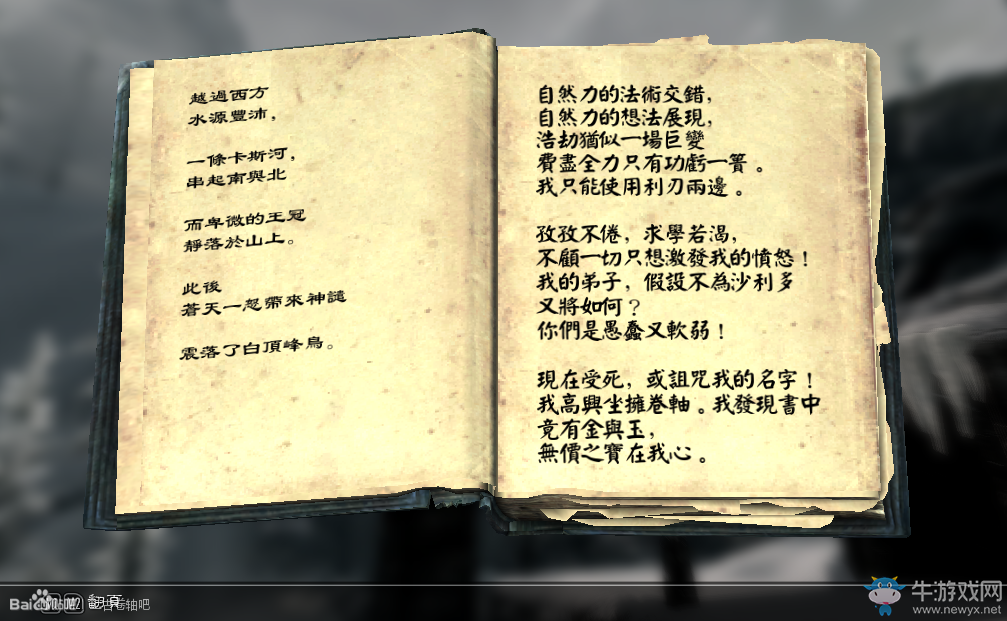 越過西方
水源豐沛，
一條卡斯河，
串起南與北
而卑微的王冠
靜落於山上。
此後
蒼天一怒帶來神譴
震落了白頂峰鳥。
自然力的法術交錯，
自然力的想法展現，
浩劫猶似一場巨變
費盡全力只有功虧一簣。
我只能使用利刃兩邊。
孜孜不倦，求學若渴，
不顧一切只想激發我的憤怒！
我的弟子，假設不為沙利多
又將如何？
你們是愚蠢又軟弱！
現在受死，或詛咒我的名字！
我高興坐擁卷軸。我發現書中
竟有金與玉，
無價之寶在我心。
古卷轴吧
牛游戏网
www.newyx.net